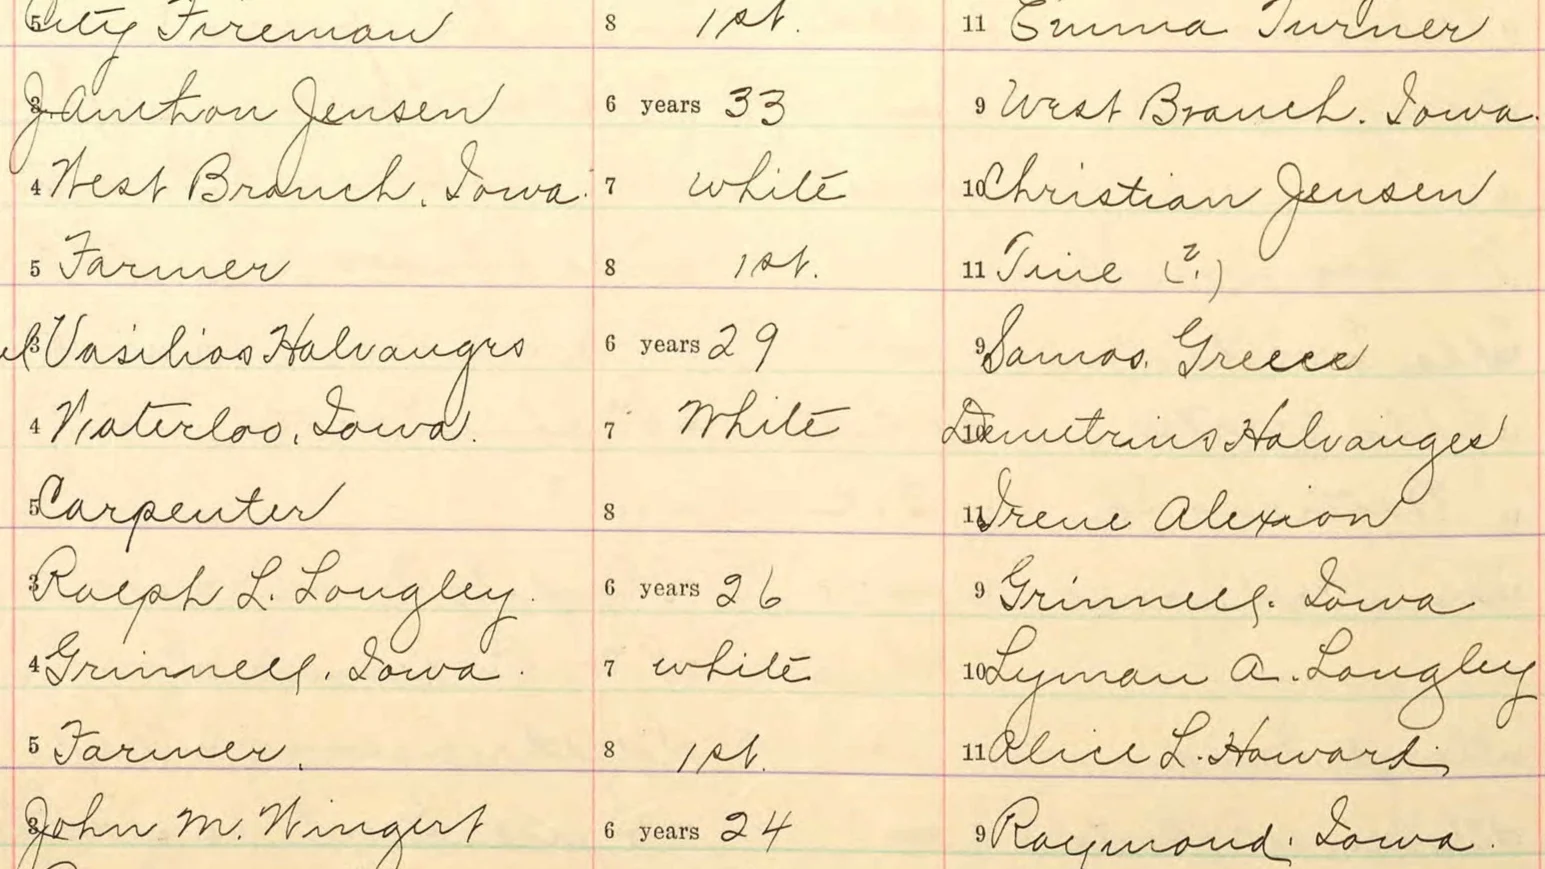 5 City Fireman 8 1st. 11 Emma Turner
3 J. Anthon Jensen 6 years 33 9 West Branch. Iowa.
4 West Branch, Iowa. 7 white 10 Christian Jensen
5 Farmer 8 1st. 11 Tine (?)
3 Vasilios Halvangrs 6 years 29 9 Samos. Greece
4 Waterloo, Iowa. 7 White 10 Demetrius Halvanges
5 Carpenter 8 11 Irene Alexion
3 Ralph L. Longley. 6 years 26 9 Grinnell. Iowa
4 Grinnell, Iowa. 7 white 10 Lyman A. Longley
5 Farmer. 8 1st. 11 Alice L. Howard.
3 John M. Wingert 6 years 24 9 Raymond. Iowa.